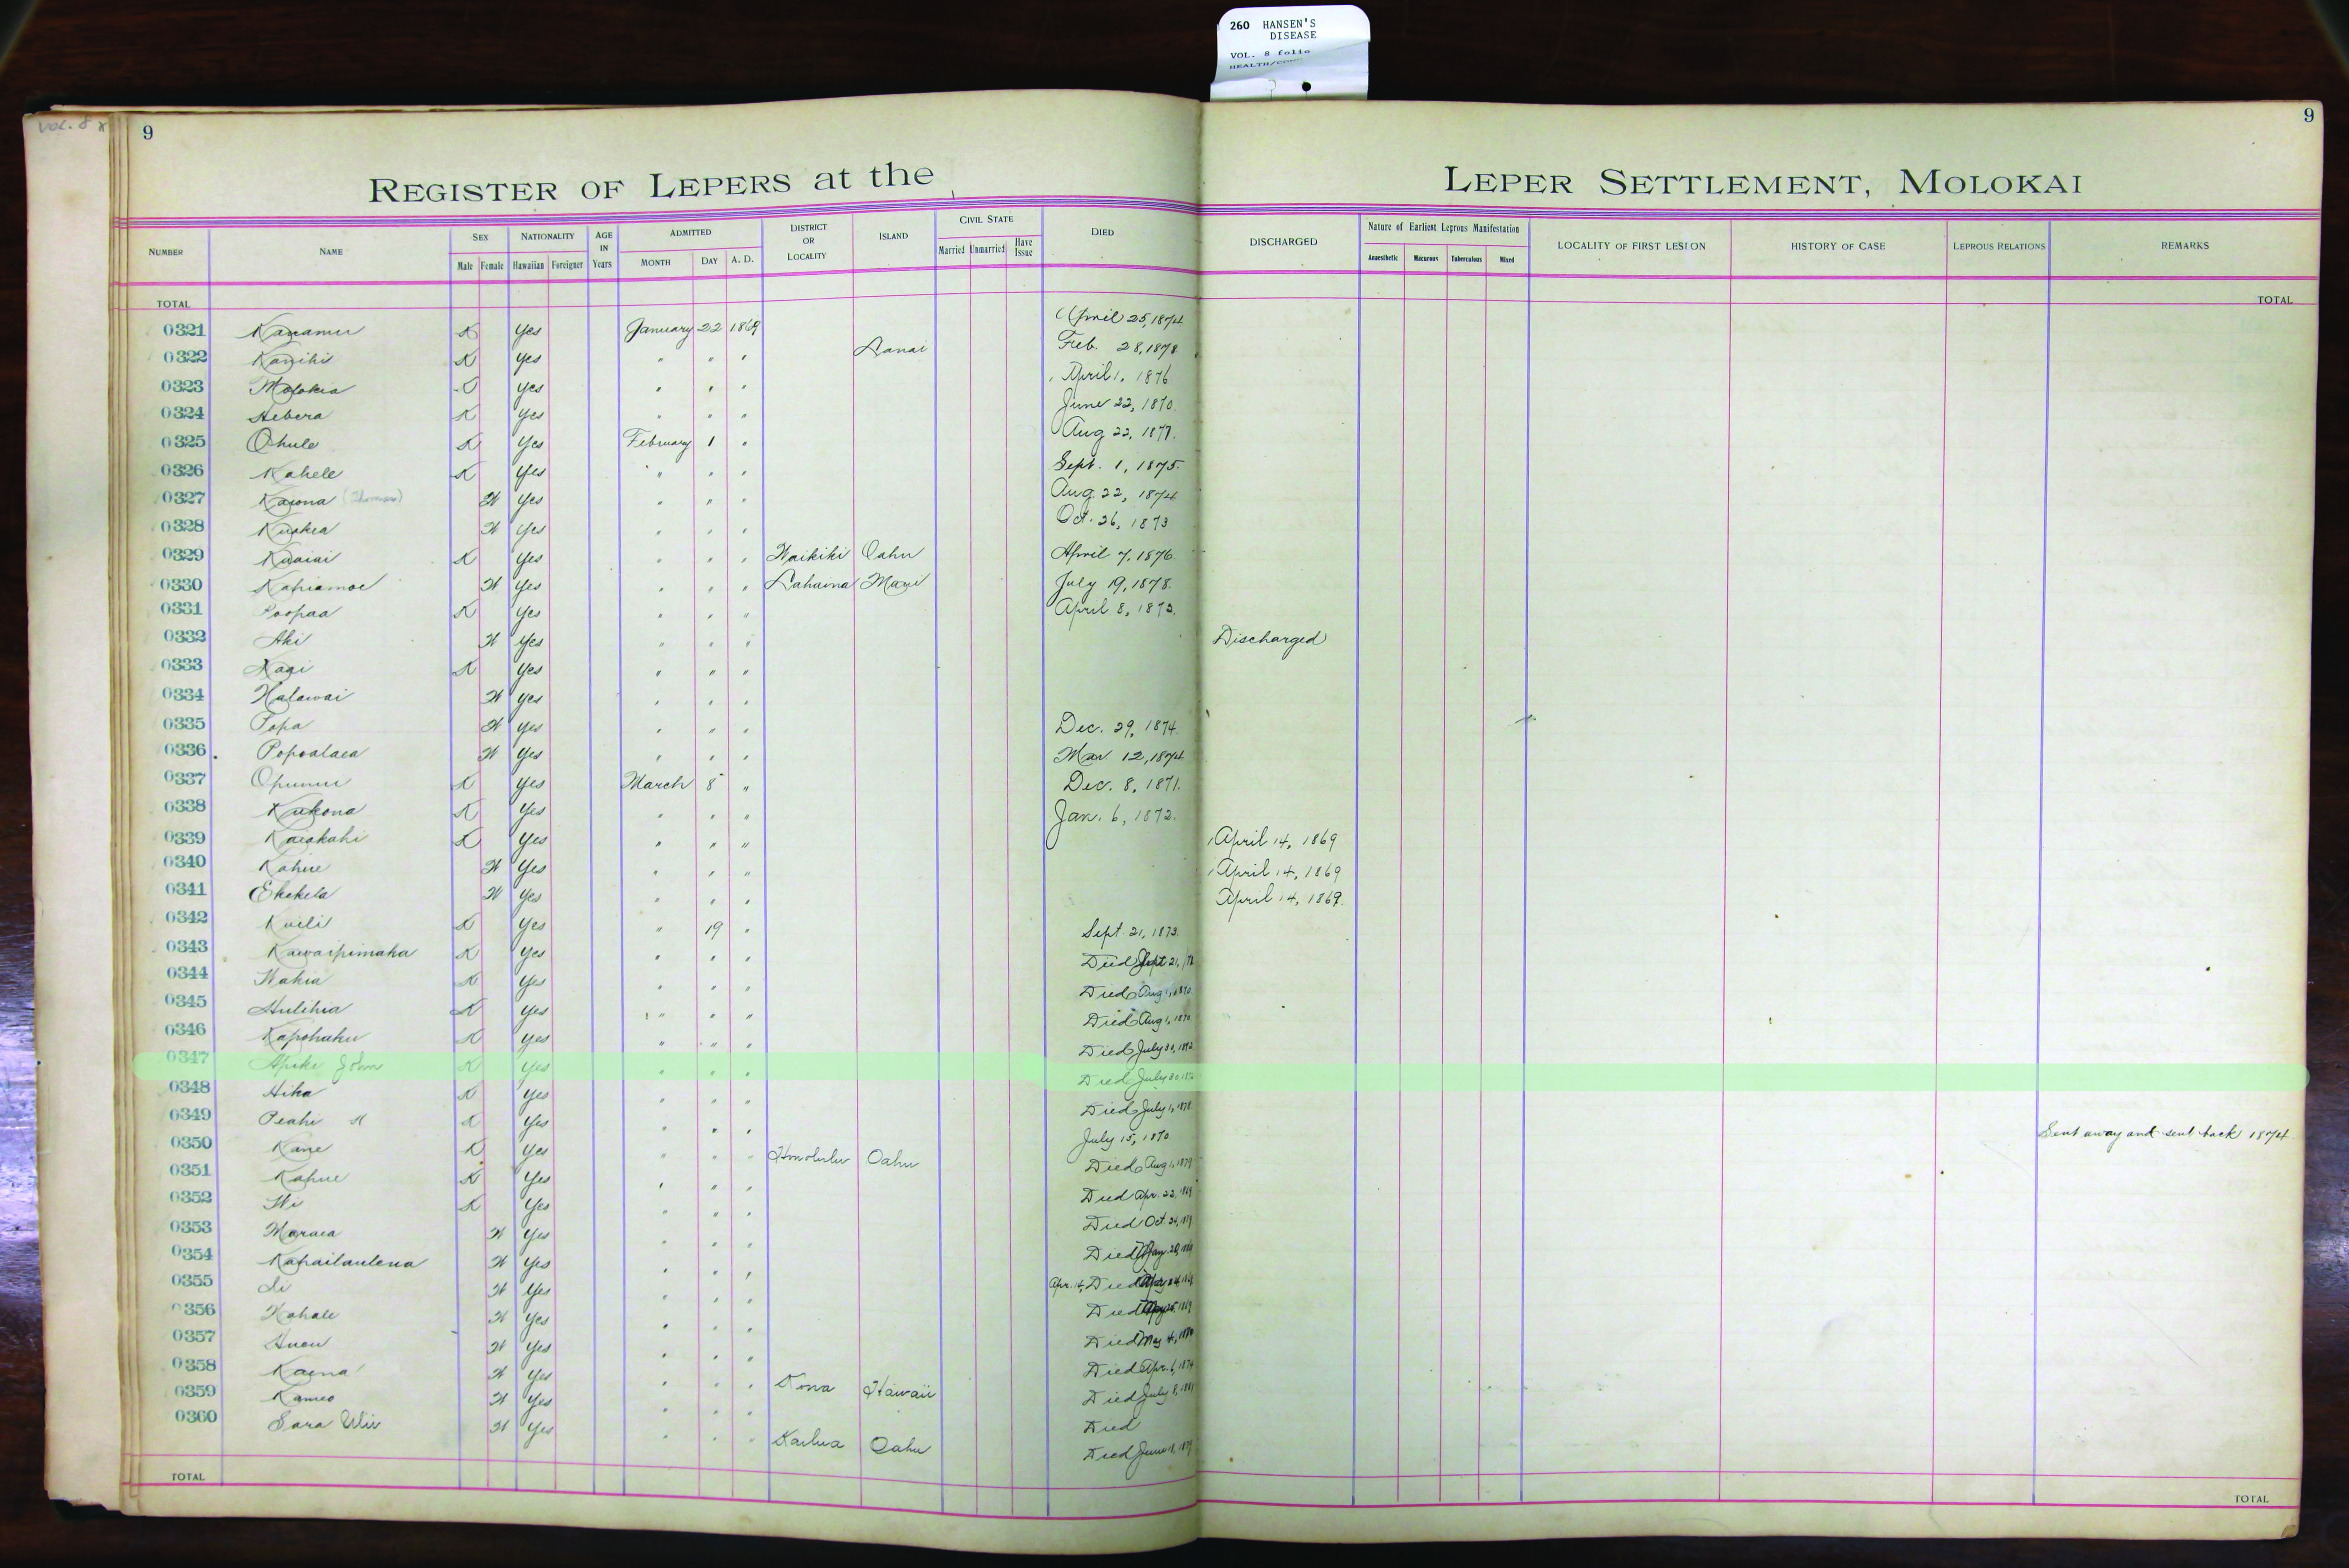 260 HANSEN'S
DISEASE
VOL. 8 folio
VOL. 8
9
9
REGISTER OF LEPERS at the LEPER SETTLEMENT, MOLOKAI
NUMBER NAME SEX Male Female NATIONALITY Hawaiian Foreigner AGE IN Years ADMITTED MONTH DAY A. D. DISTRICT OR LOCALITY ISLAND CIVIL STATE Married Unmarried Have Issue DIED DISCHARGED Nature of Earliest Leprous Manifestation Anaesthetic Macurous Tuberculous Mixed LOCALITY OF FIRST LESION HISTORY OF CASE LEPROUS RELATIONS REMARKS
TOTAL TOTAL
0321 Kanamu K Yes January 22 1869 April 25, 1874
0322 Kanihi K Yes " " " Lanai Feb. 28, 1878
0323 Molokia Yes " " " April 1, 1876
0324 Hebera K Yes " " " June 22, 1870
0325 Ohule K Yes February 1 " Aug 22, 1877.
0326 Kahele K Yes " " " Sept. 1, 1875.
0327 Kaiona (Thomas) W Yes " " " Aug. 22, 1874
0328 W Yes " " " Oct. 26, 1873
0329 Kuaiai K Yes " " " Waikiki Oahu April 7, 1876.
0330 Kapiamoe W Yes " " " Lahaina Maui July 19, 1878.
0331 Poopaa K Yes " " " April 8, 1873.
0332 Aki W Yes " " " Discharged
0333 K Yes " " "
0334 Halawai W Yes " " "
0335 Popa W Yes " " " Dec. 29, 1874.
0336 Popoalaea W Yes " " " Mar 12, 1874
0337 Opunui K Yes March 8 " Dec. 8, 1871.
0338 Kukona K Yes " " " Jan. 6, 1872.
0339 Kaiakahi K Yes " " " April 14, 1869
0340 Kahue W Yes " " " April 14, 1869
0341 Ekekela W Yes " " " April 14, 1869.
0342 Kuili K Yes " 19 " Sept. 21, 1873.
0343 Kawaipimaka K Yes " " " Died Sept 21,
0344 Wahia K Yes " " " Died Aug 1, 1870
0345 Hulihia K Yes " " " Died Aug 1, 1870
0346 Kapohaku K Yes " " " Died July 30,
0347 Apiki John K Yes " " " Died July 30,
0348 Hika K Yes " " " Died July 1, 1878
0349 Peahi K Yes " " " July 15, 1870. Sent away and sent back 1874.
0350 Kane K Yes " " " Honolulu Oahu Died Aug 1, 1879
0351 Kahue K Yes " " " Died Apr. 22, 1869
0352 K Yes " " " Died Oct.
0353 Maraea W Yes " " " Died
0354 Kahailaulena W Yes " " " Apr. 14, Died
0355 W Yes " " " Died
0356 Kahale W Yes " " " Died May 4,
0357 W Yes " " " Died Apr. 6, 1874
0358 Kaena W Yes " " " Kona Hawaii Died July 8, 1881
0359 Kameo W Yes " " " Died
0360 Sara W Yes " " " Kailua Oahu Died June 18, 1879
TOTAL TOTAL